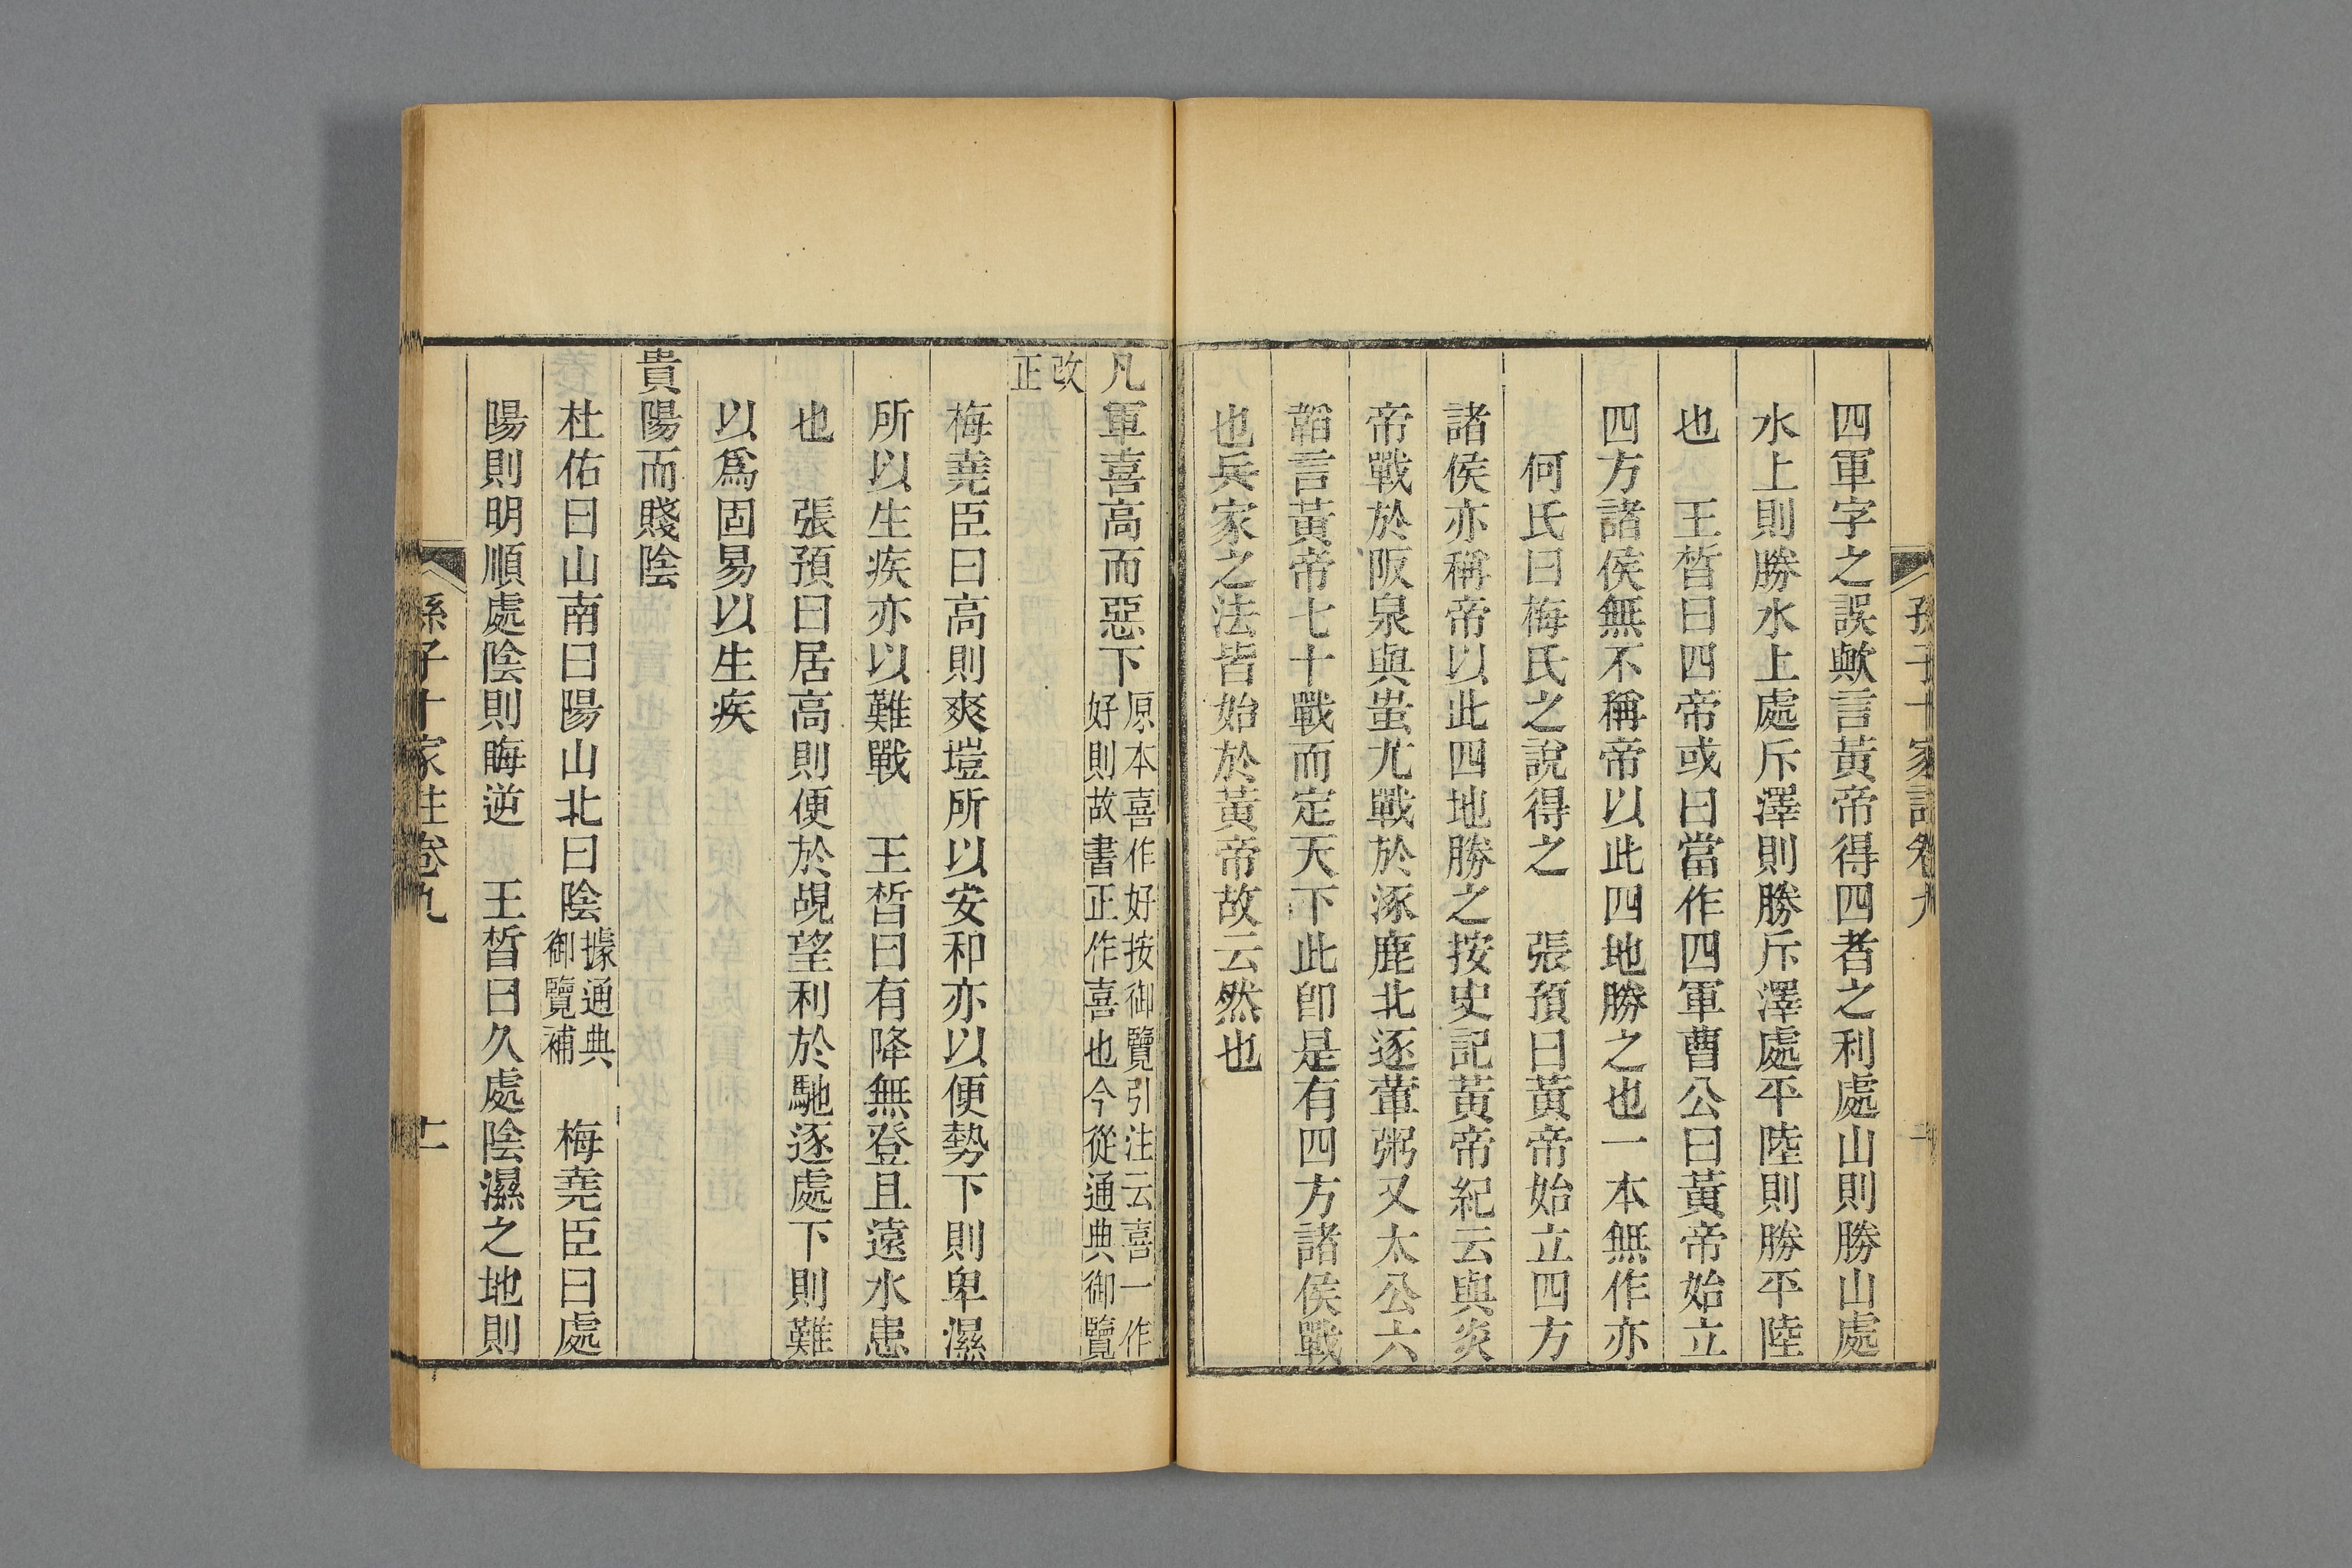 孫子十家註卷九
四軍字之誤歟言黃帝得四者之利處山則勝山處
水上則勝水上處斥澤則勝斥澤處平陸則勝平陸
也　王晳曰四帝或曰當作四軍曹公曰黃帝始立
四方諸侯無不稱帝以此四地勝之也一本無作亦
何氏曰梅氏之說得之　張預曰黃帝始立四方
諸侯亦稱帝以此四地勝之按史記黃帝紀云與炎
帝戰於阪泉與蚩尤戰於涿鹿北逐葷粥又太公六
韜言黃帝七十戰而定天下此卽是有四方諸侯戰
也兵家之法皆始於黃帝故云然也
凡軍喜高而惡下原本喜作好按御覽引注云喜一作
好則故書正作喜也今從通典御覽
改
正
梅堯臣曰高則爽塏所以安和亦以便勢下則卑濕
所以生疾亦以難戰　王晳曰有降無登且遠水患
也　張預曰居高則便於覘望利於馳逐處下則難
以爲固易以生疾
貴陽而賤陰
杜佑曰山南曰陽山北曰陰據通典
御覽補　梅堯臣曰處
陽則明順處陰則晦逆　王晳曰久處陰濕之地則
孫子十家註卷九
十一